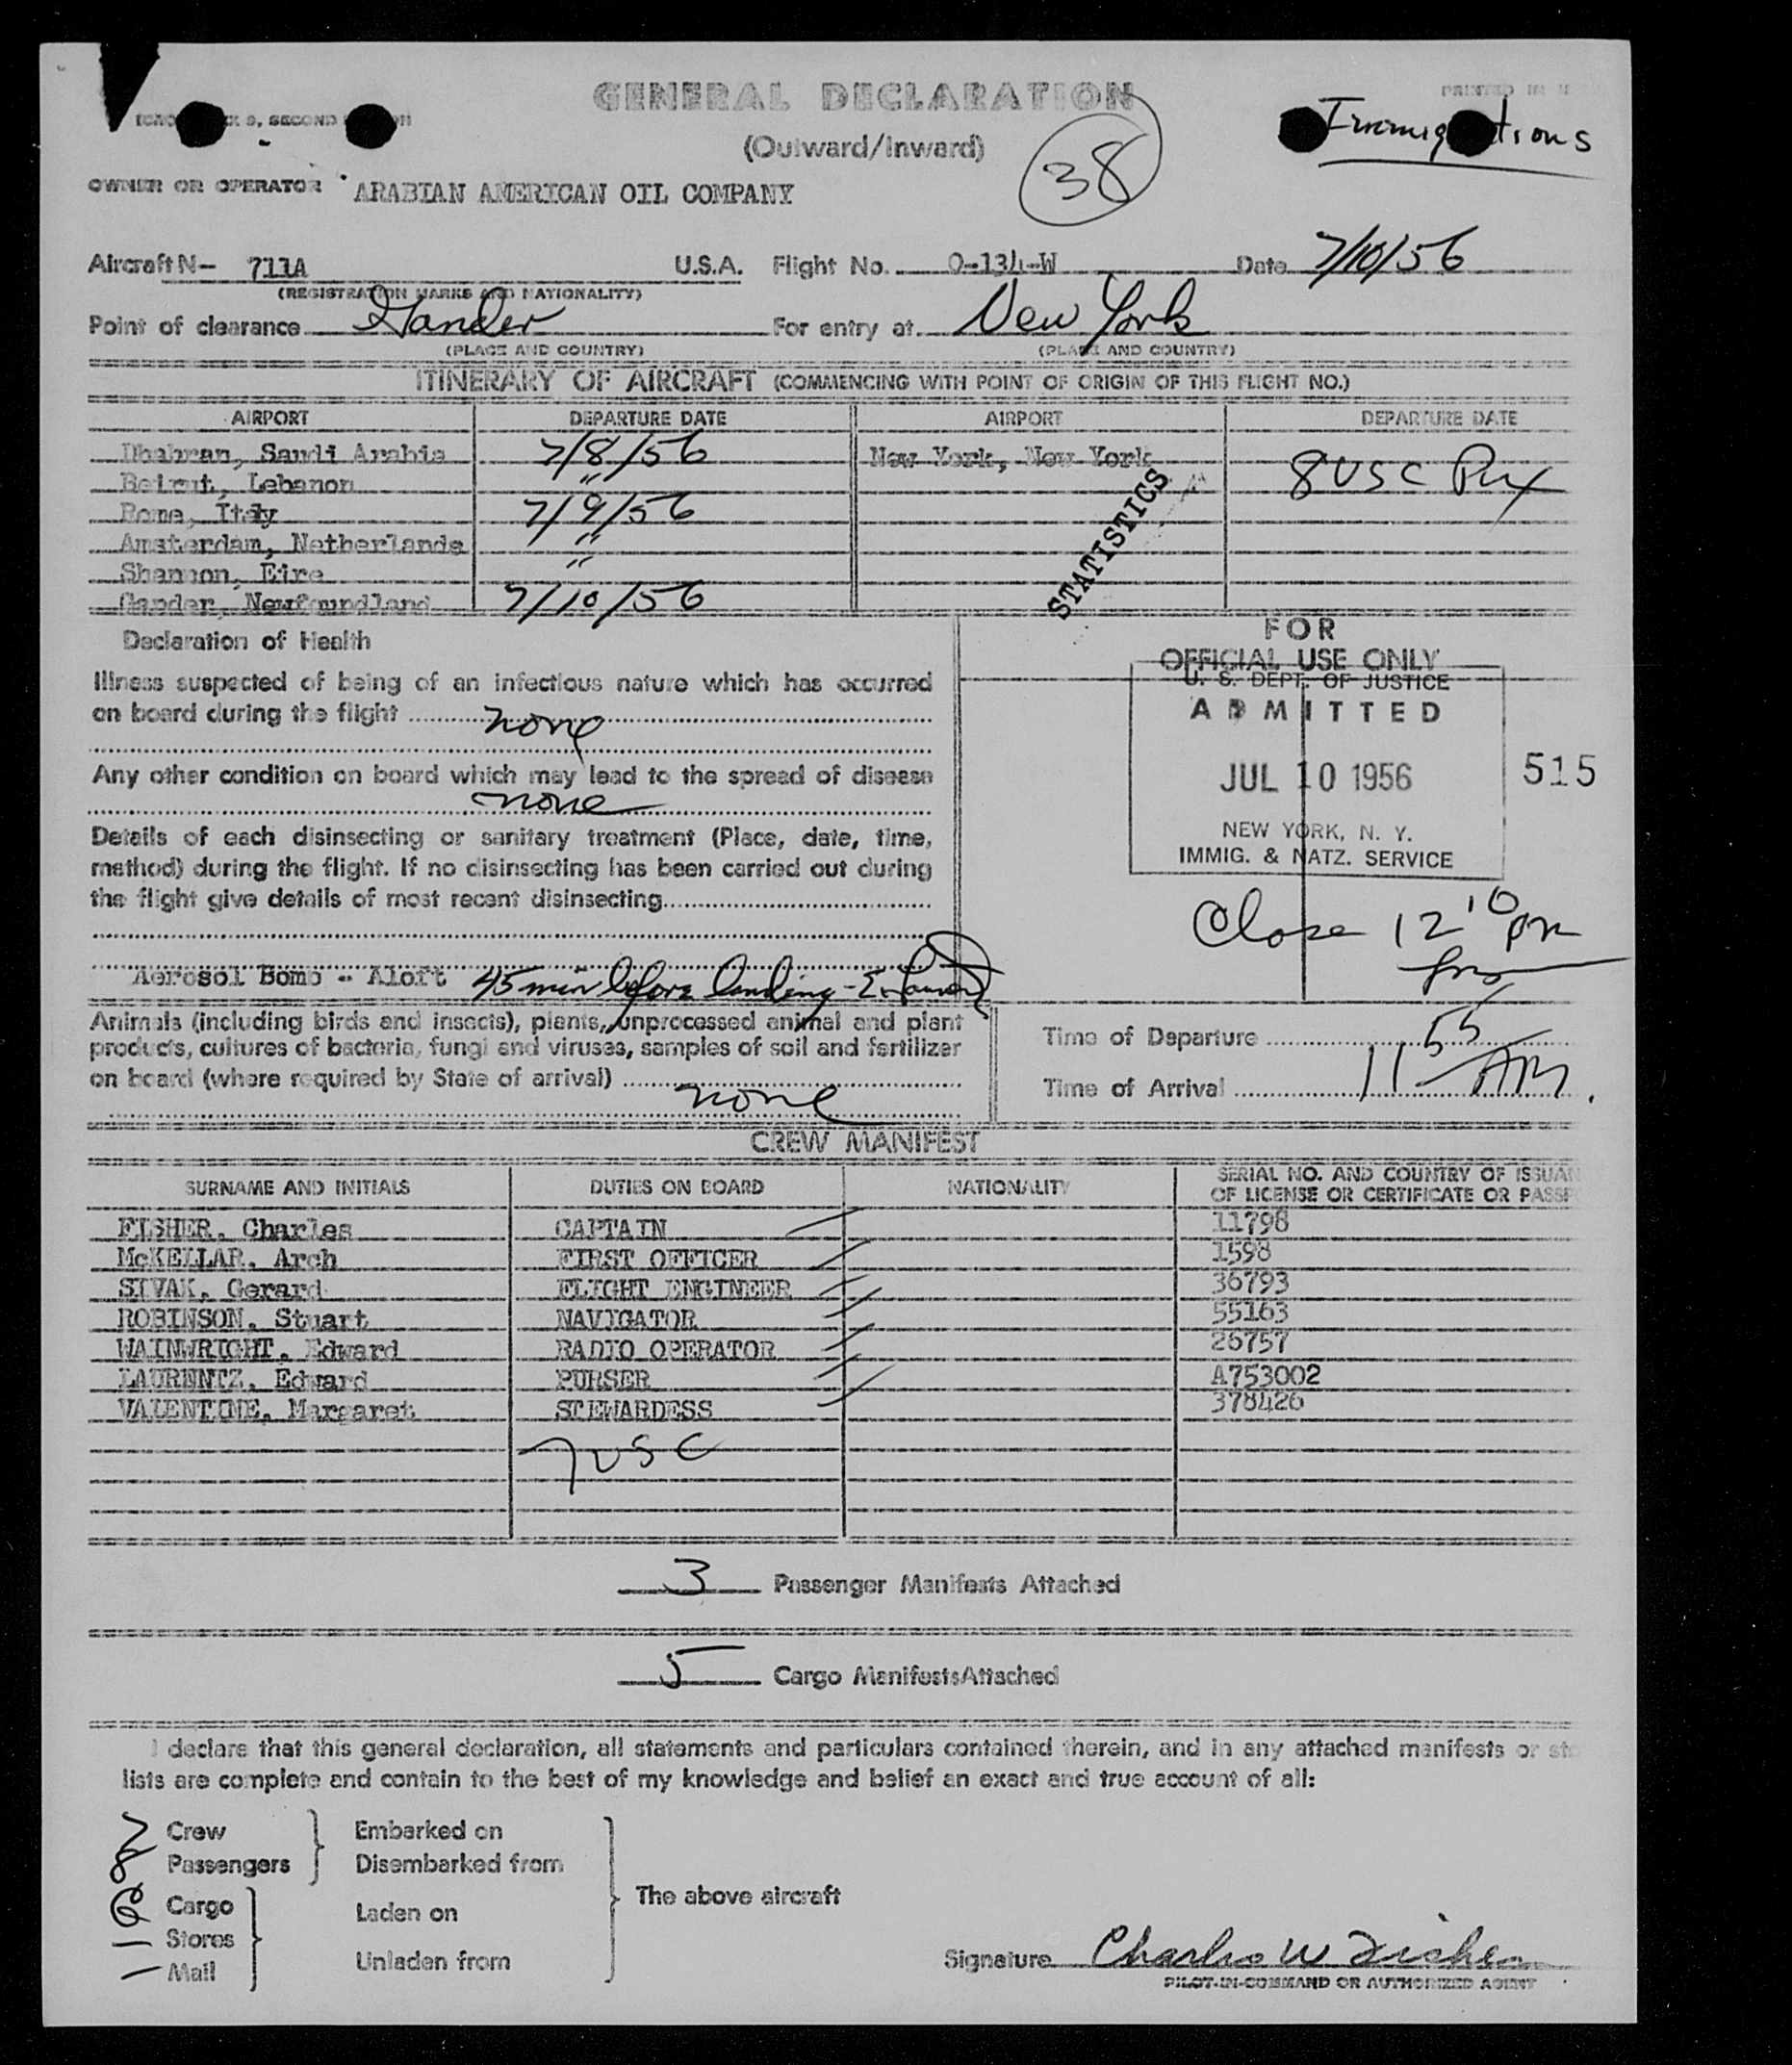 GENERAL DECLARATION
PRINTED IN
(Outward/Inward)
38
OWNER OR OPERATOR ARABIAN AMERICAN OIL COMPANY
Aircraft N- 711A U.S.A. Flight No. 0-134-W Date 7/10/56
(REGISTRATION MARKS AND NATIONALITY)
Point of clearance Gander For entry at New York
(PLACE AND COUNTRY) (PLACE AND COUNTRY)
ITINERARY OF AIRCRAFT (COMMENCING WITH POINT OF ORIGIN OF THIS FLIGHT NO.)
AIRPORT DEPARTURE DATE AIRPORT DEPARTURE DATE
Dhahran, Saudi Arabia 7/8/56 New York, New York 8 USC
Beirut, Lebanon "
Rome, Italy 7/9/56
Amsterdam, Netherlands "
Shannon, Eire "
Gander, Newfoundland 7/10/56
STATISTICS
Declaration of Health
FOR
OFFICIAL USE ONLY
Illness suspected of being of an infectious nature which has occurred
on board during the flight none
U. S. DEPT. OF JUSTICE
ADMITTED
JUL 10 1956
515
NEW YORK, N. Y.
IMMIG. & NATZ. SERVICE
Close 12 10 pm
Any other condition on board which may lead to the spread of disease
none
Details of each disinsecting or sanitary treatment (Place, date, time,
method) during the flight. If no disinsecting has been carried out during
the flight give details of most recent disinsecting
Aerosol Bomb -- Aloft 45 min before landing -
Animals (including birds and insects), plants, unprocessed animal and plant
products, cultures of bacteria, fungi and viruses, samples of soil and fertilizer
on board (where required by State of arrival)
none
Time of Departure
Time of Arrival 11 55 AM
CREW MANIFEST
SURNAME AND INITIALS DUTIES ON BOARD NATIONALITY SERIAL NO. AND COUNTRY OF ISSUAN
OF LICENSE OR CERTIFICATE OR PASSP
FISHER, Charles CAPTAIN 11798
McKELLAR, Arch FIRST OFFICER 1598
SIVAK, Gerard FLIGHT ENGINEER 36793
ROBINSON, Stuart NAVIGATOR 55163
WAINWRIGHT, Edward RADIO OPERATOR 26757
LAURENTZ, Edward PURSER A753002
VALENTINE, Margaret STEWARDESS 378426
7 USC
3 Passenger Manifests Attached
5 Cargo Manifests Attached
I declare that this general declaration, all statements and particulars contained therein, and in any attached manifests or sto
lists are complete and contain to the best of my knowledge and belief an exact and true account of all:
7 Crew
8 Passengers
Cargo
Stores
Mail
Embarked on
Disembarked from
Laden on
Unladen from
The above aircraft
Signature Charles W Fisher
PILOT-IN-COMMAND OR AUTHORIZED AGENT